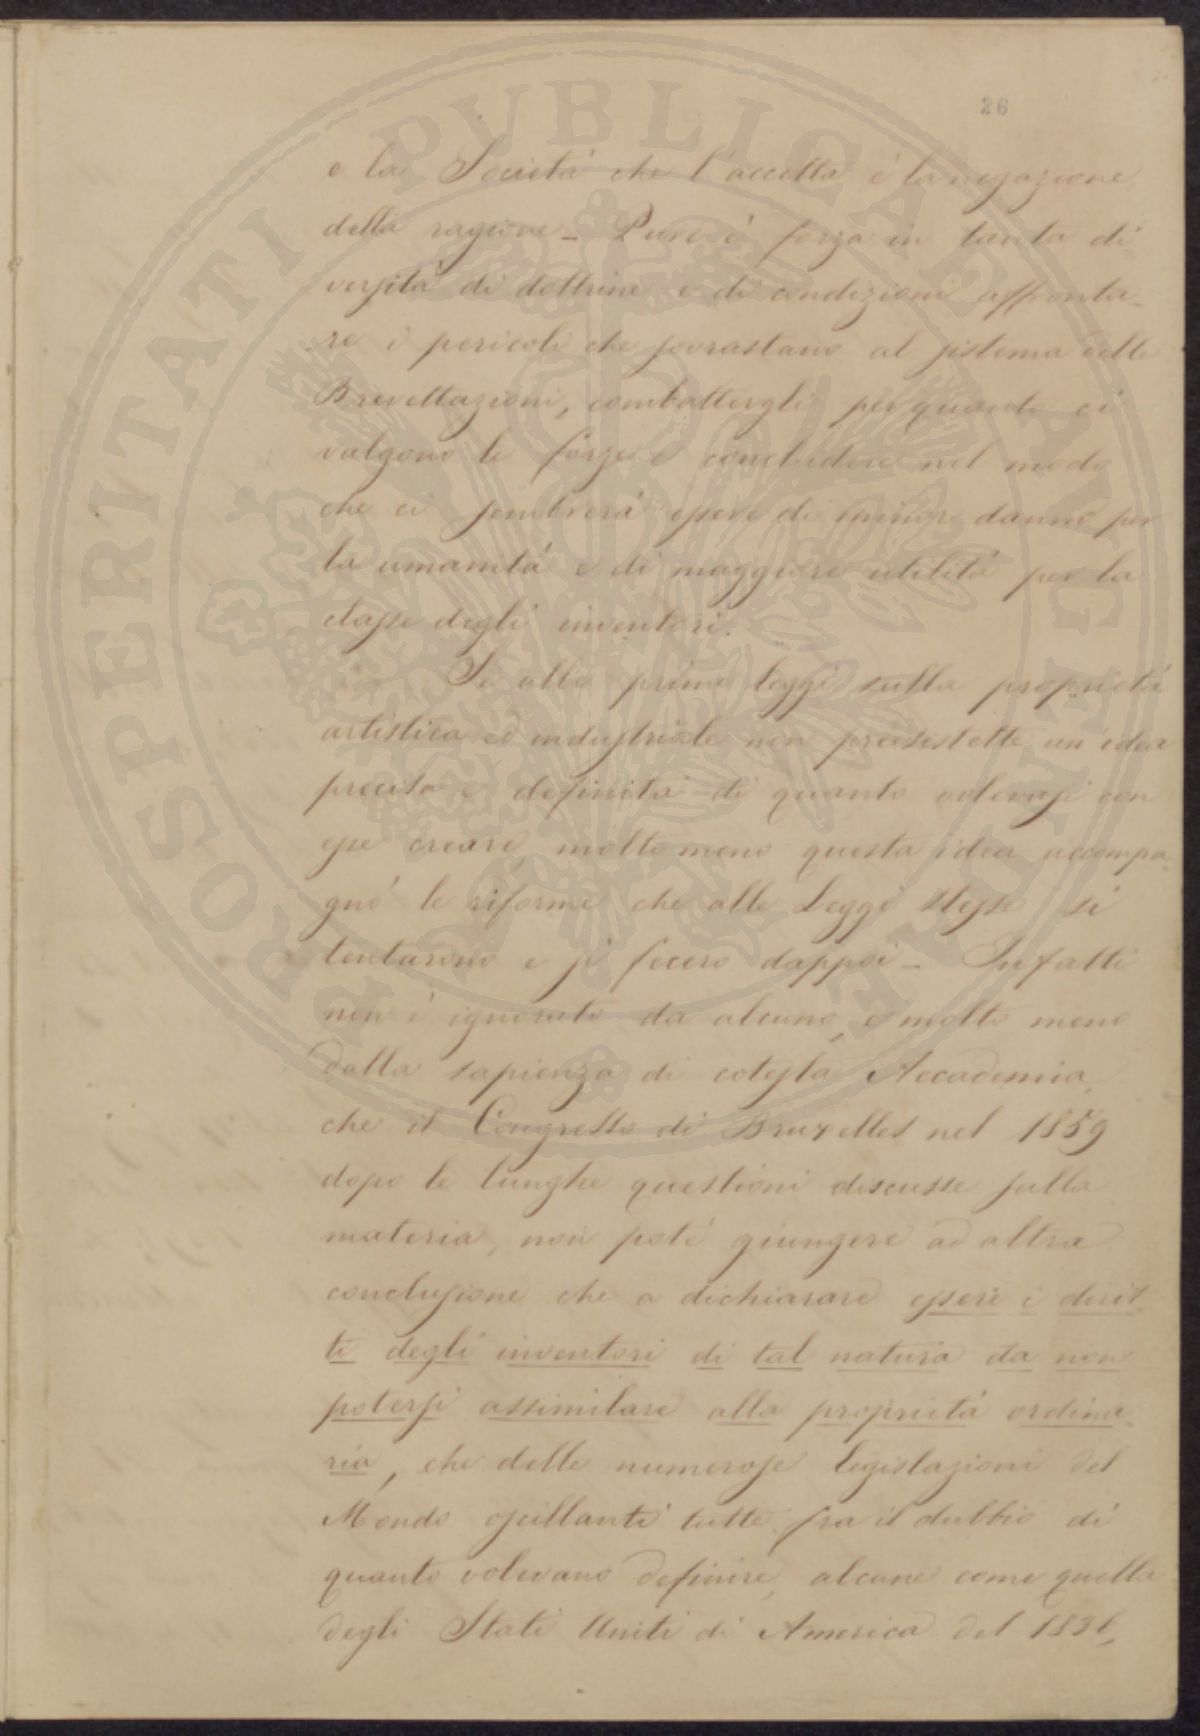 26
e la Società che l'accetta è la negazione
della ragione - Pure è forza in tanta di
versità di dottrine e di condizioni affronta-
re i pericoli che sovrastano al sistema delle
Brevettazioni, combattergli per quanto ci
valgono le forze e concludere nel modo
che ci sembrerà essere di minor danno per
la umanità e di maggiore utilità per la
classe degli inventori.
Se alle prime leggi sulla proprietà
artistica ed industriale non preesistette un idea
precisa e definita di quanto volevasi con
esse creare, molto meno questa idea accompa-
gnò le riforme che alle Leggi stesse si
tentarono e si fecero dappoi - Infatti
non è ignorato da alcuno, e molto meno
dalla sapienza di cotesta Accademia,
che il Congresso di Bruxelles nel 1859
dopo le lunghe questioni discusse sulla
materia, non potè giungere ad altra
conclusione che a dichiarare essere i dirit-
ti degli inventori di tal natura da non
potersi assimilare alla proprietà ordina-
ria, che delle numerose legislazioni del
Mondo oscillanti tutte fra il dubbio di
quanto volevano definire, alcune come quella
degli Stati Uniti di America del 1836,
PROSPERITATI PUBLICAE AUGENDAE